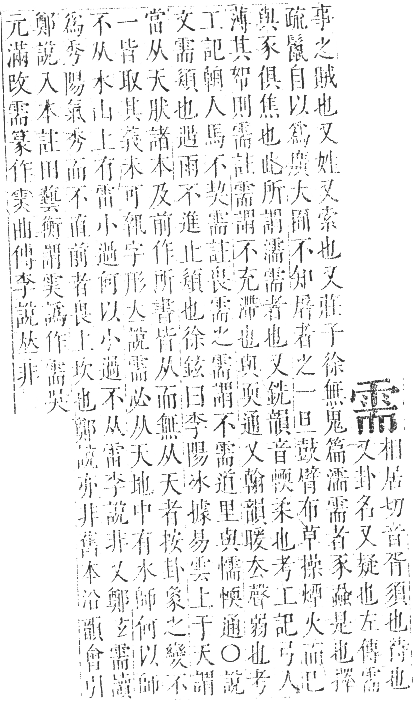 需
相居切音胥須也待也
又卦名又疑也左傳需
事之賊也又姓又索也又莊子徐無鬼篇濡需者豕蝨是也擇
疏鬣自以爲廣大囿不知屠者之一旦鼓臂布草操煙火而已
與豕俱焦也此所謂濡需者也又銑韻音輭柔也考工記弓人
薄其帤則需註需謂不充滯也與耎通又翰韻暖去聲弱也考
工記輈人馬不契需註畏需之需謂不需道里與懦愞通〇說
文需䇓也遇雨不進止䇓也徐鉉曰李陽冰據易雲上于天謂
當从天狀諸本及前作所書皆从而無从天者按卦象之變不
一皆取其義未可字形說需必从天地中有水師何以師
不从水山上有雷小過何以小過不从雷李說非又鄭玄需讀
爲秀陽氣秀而不直前者畏上坎也鄭說亦非舊本沿韻會引
鄭說入本註田藝衡謂䨏譌作需吳
元滿改需篆作䨏曲傅李說丛非